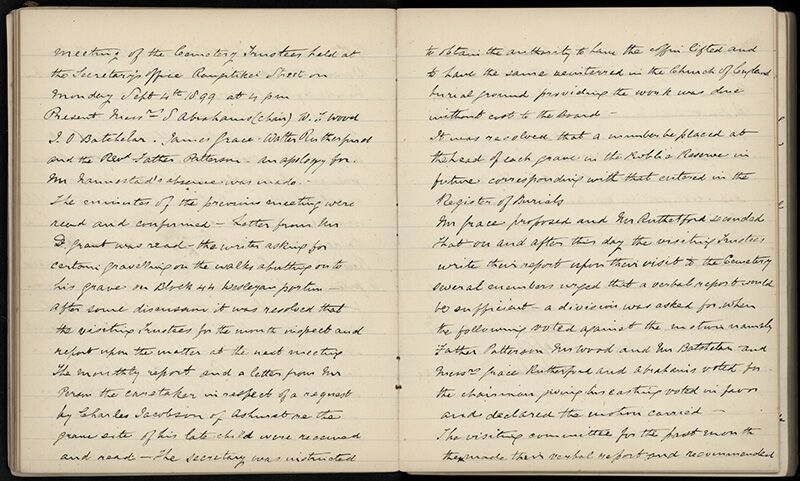 meeting of the Cemetery Trustees held at
the Secretary's Office Rangitikei Street on
Monday Sept 4th 1899 at 4 pm
Present Messrs S Abrahams (chair) W. T Wood
J. O Batchelar. James Grace. Walter Rutherfurd
and the Revd Father Patterson. an apology for
Mr Nannestad's absence was made. -
The minutes of the previous meeting were
read and confirmed - Letter from Mr
D. Grant was read - the writer asking for
certain gravelling on the walks abutting on to
his graves on Block 44 Wesleyan portion -
after some discussion it was resolved that
the visiting Trustees for the month inspect and
report upon the matter at the next meeting
The monthly report and a letter from Mr
the caretaker in respect of a request
by Charles Jacobson of Ashurst re the
grave site of his late child were received
and read - The secretary was instructed
to obtain the authority to have the coffin lifted and
to have the same reinterred in the Church of England
burial ground providing the work was done
without cost to the Board -
It was resolved that a number be placed at
the head of each grave in the Public Reserve in
future corresponding with that entered in the
Register of Burials
Mr Grace proposed and Mr Rutherford seconded
That on and after this day the visiting Trustees
write their report upon their visit to the Cemetery
several members urged that a verbal report would
be sufficient - a division was asked for when
the following voted against the motion namely
Father Patterson Mr Wood and Mr Batchelar and
Messrs Grace Rutherford and Abrahams voted for -
the chairman giving his casting voted in favor
and declared the motion carried -
The visiting committee for the past month
made their verbal report and recommended